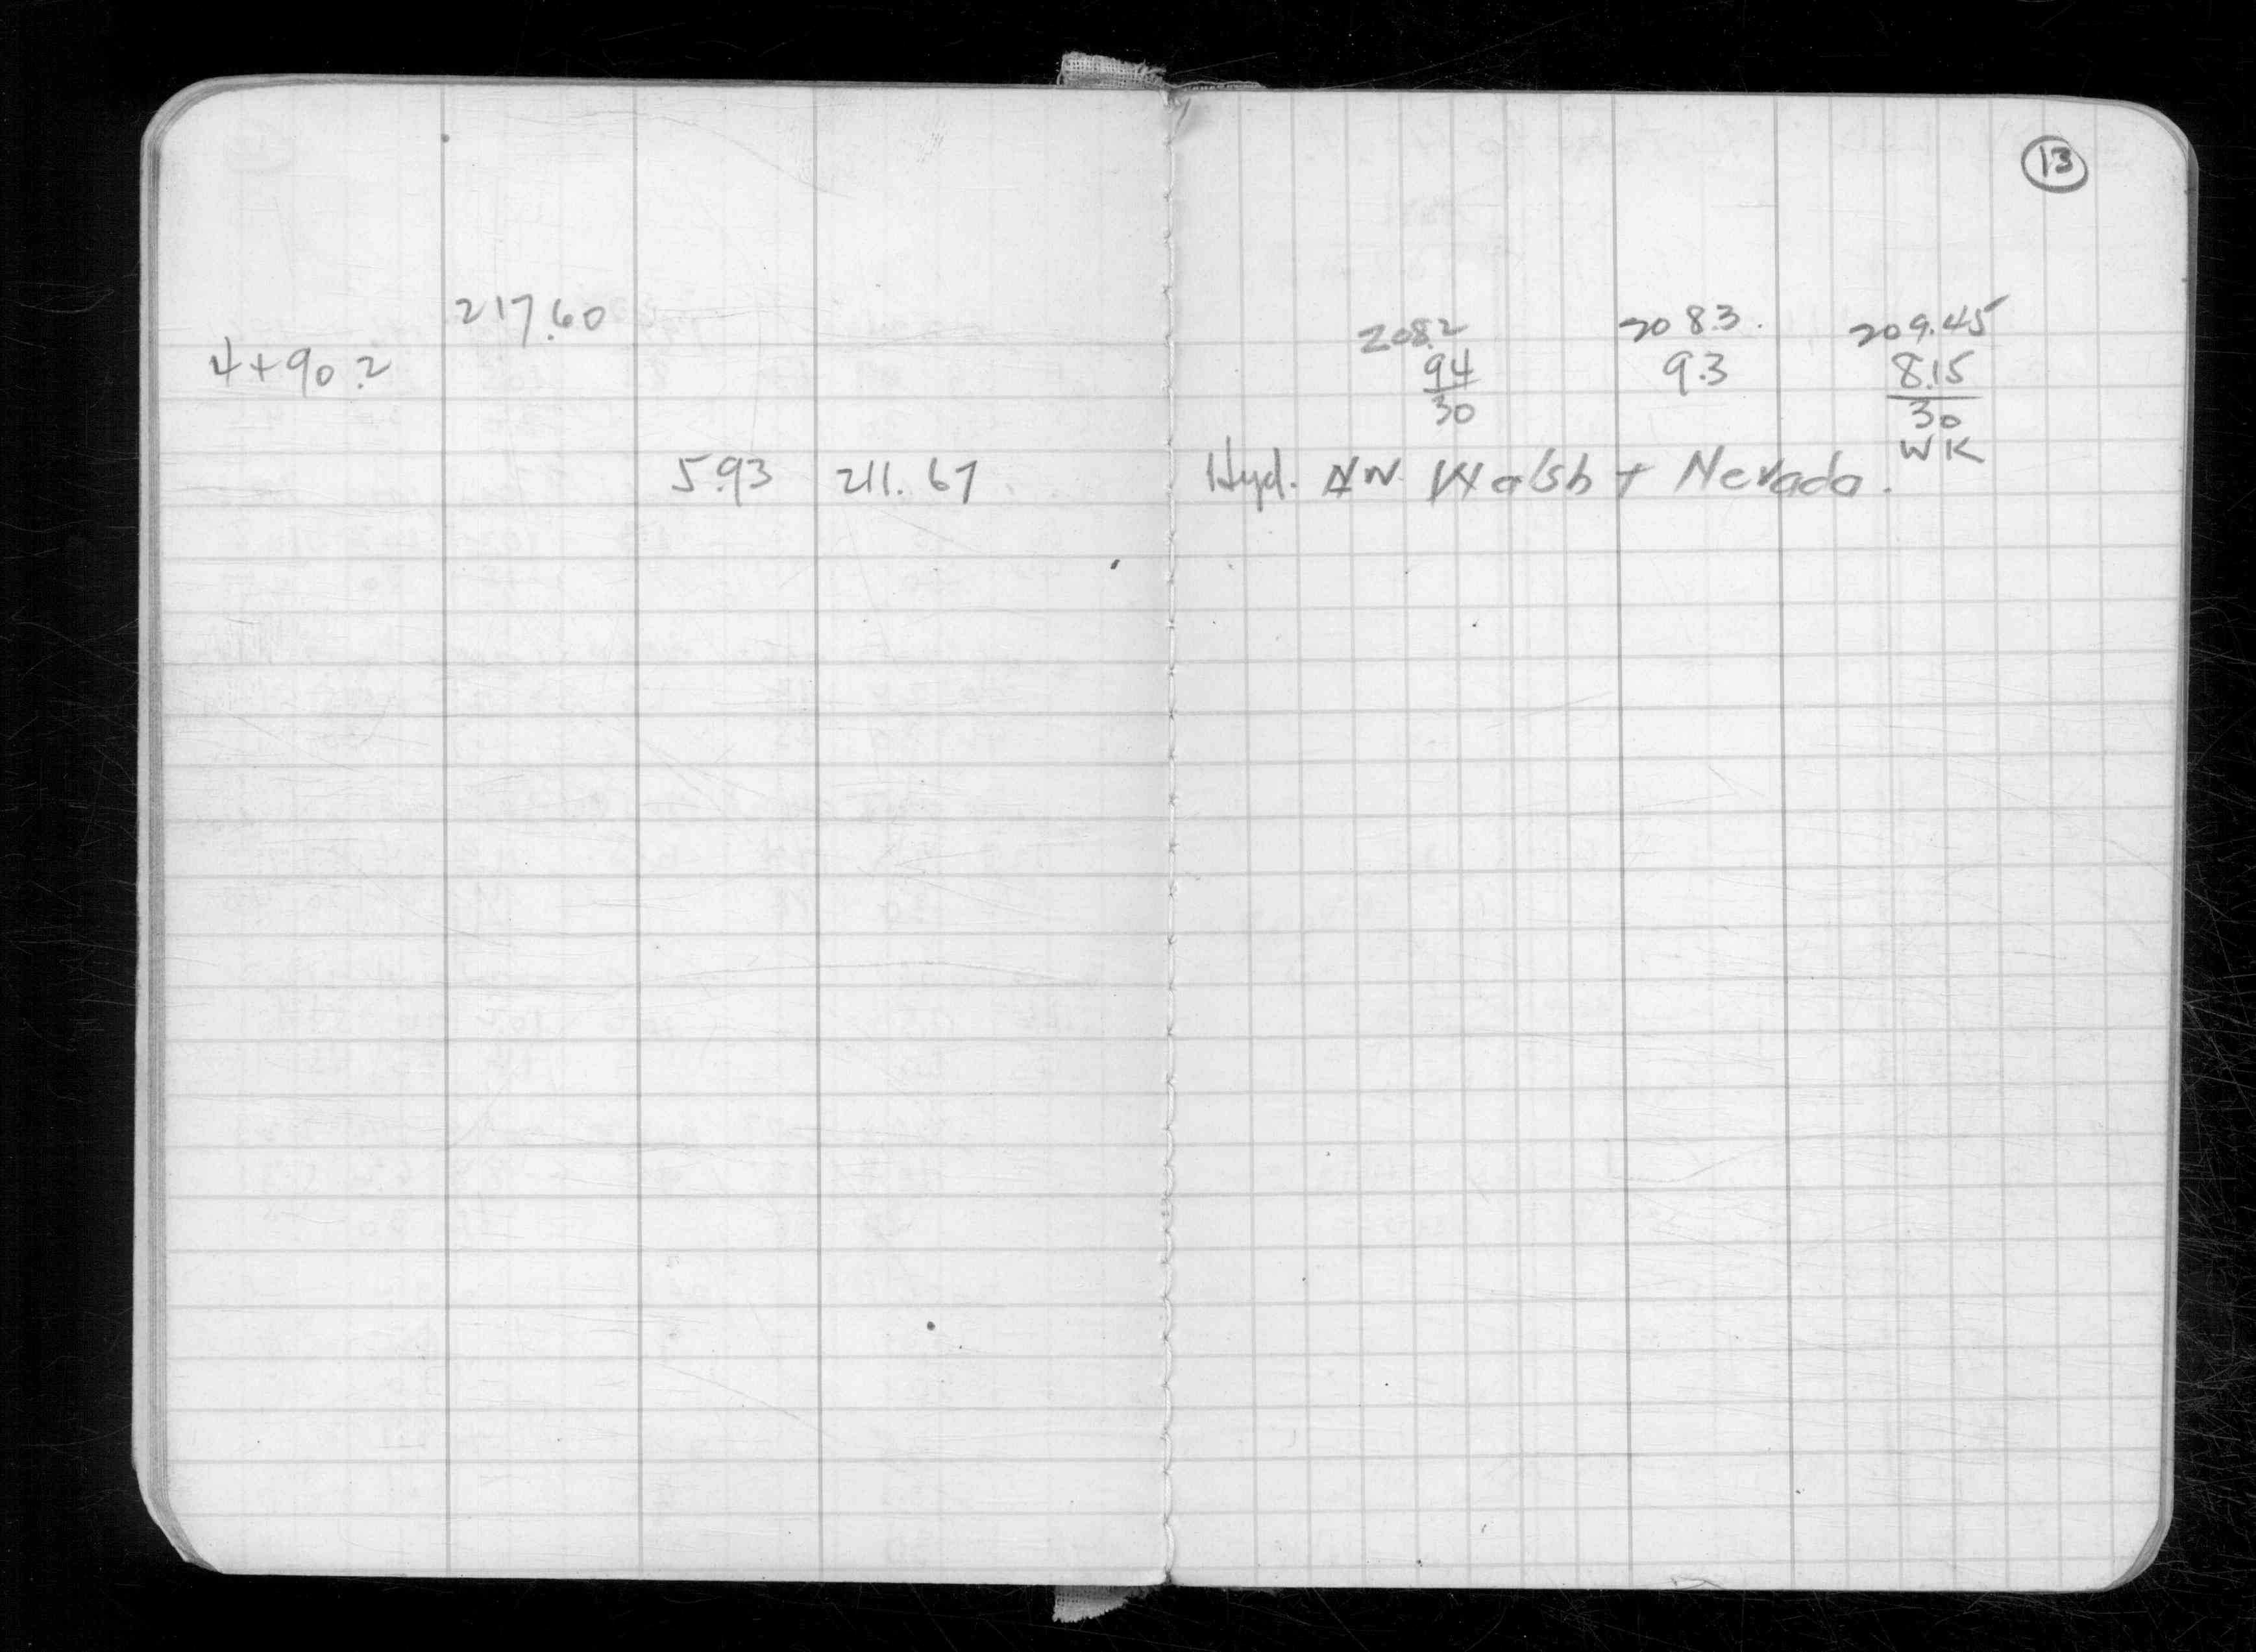 13
217.60
4+90.2
208.2 208.3 209.45
9.4 9.3 8.15
30 30
WK
5.93 211.67
Hyd. NW. Walsh + Nevada.